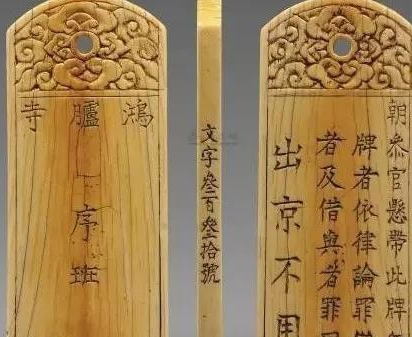 鴻臚寺
序班
文字叁百叁拾號
朝叅官懸帶此牌
牌者依律論罪
者及借與者罪
出京不用